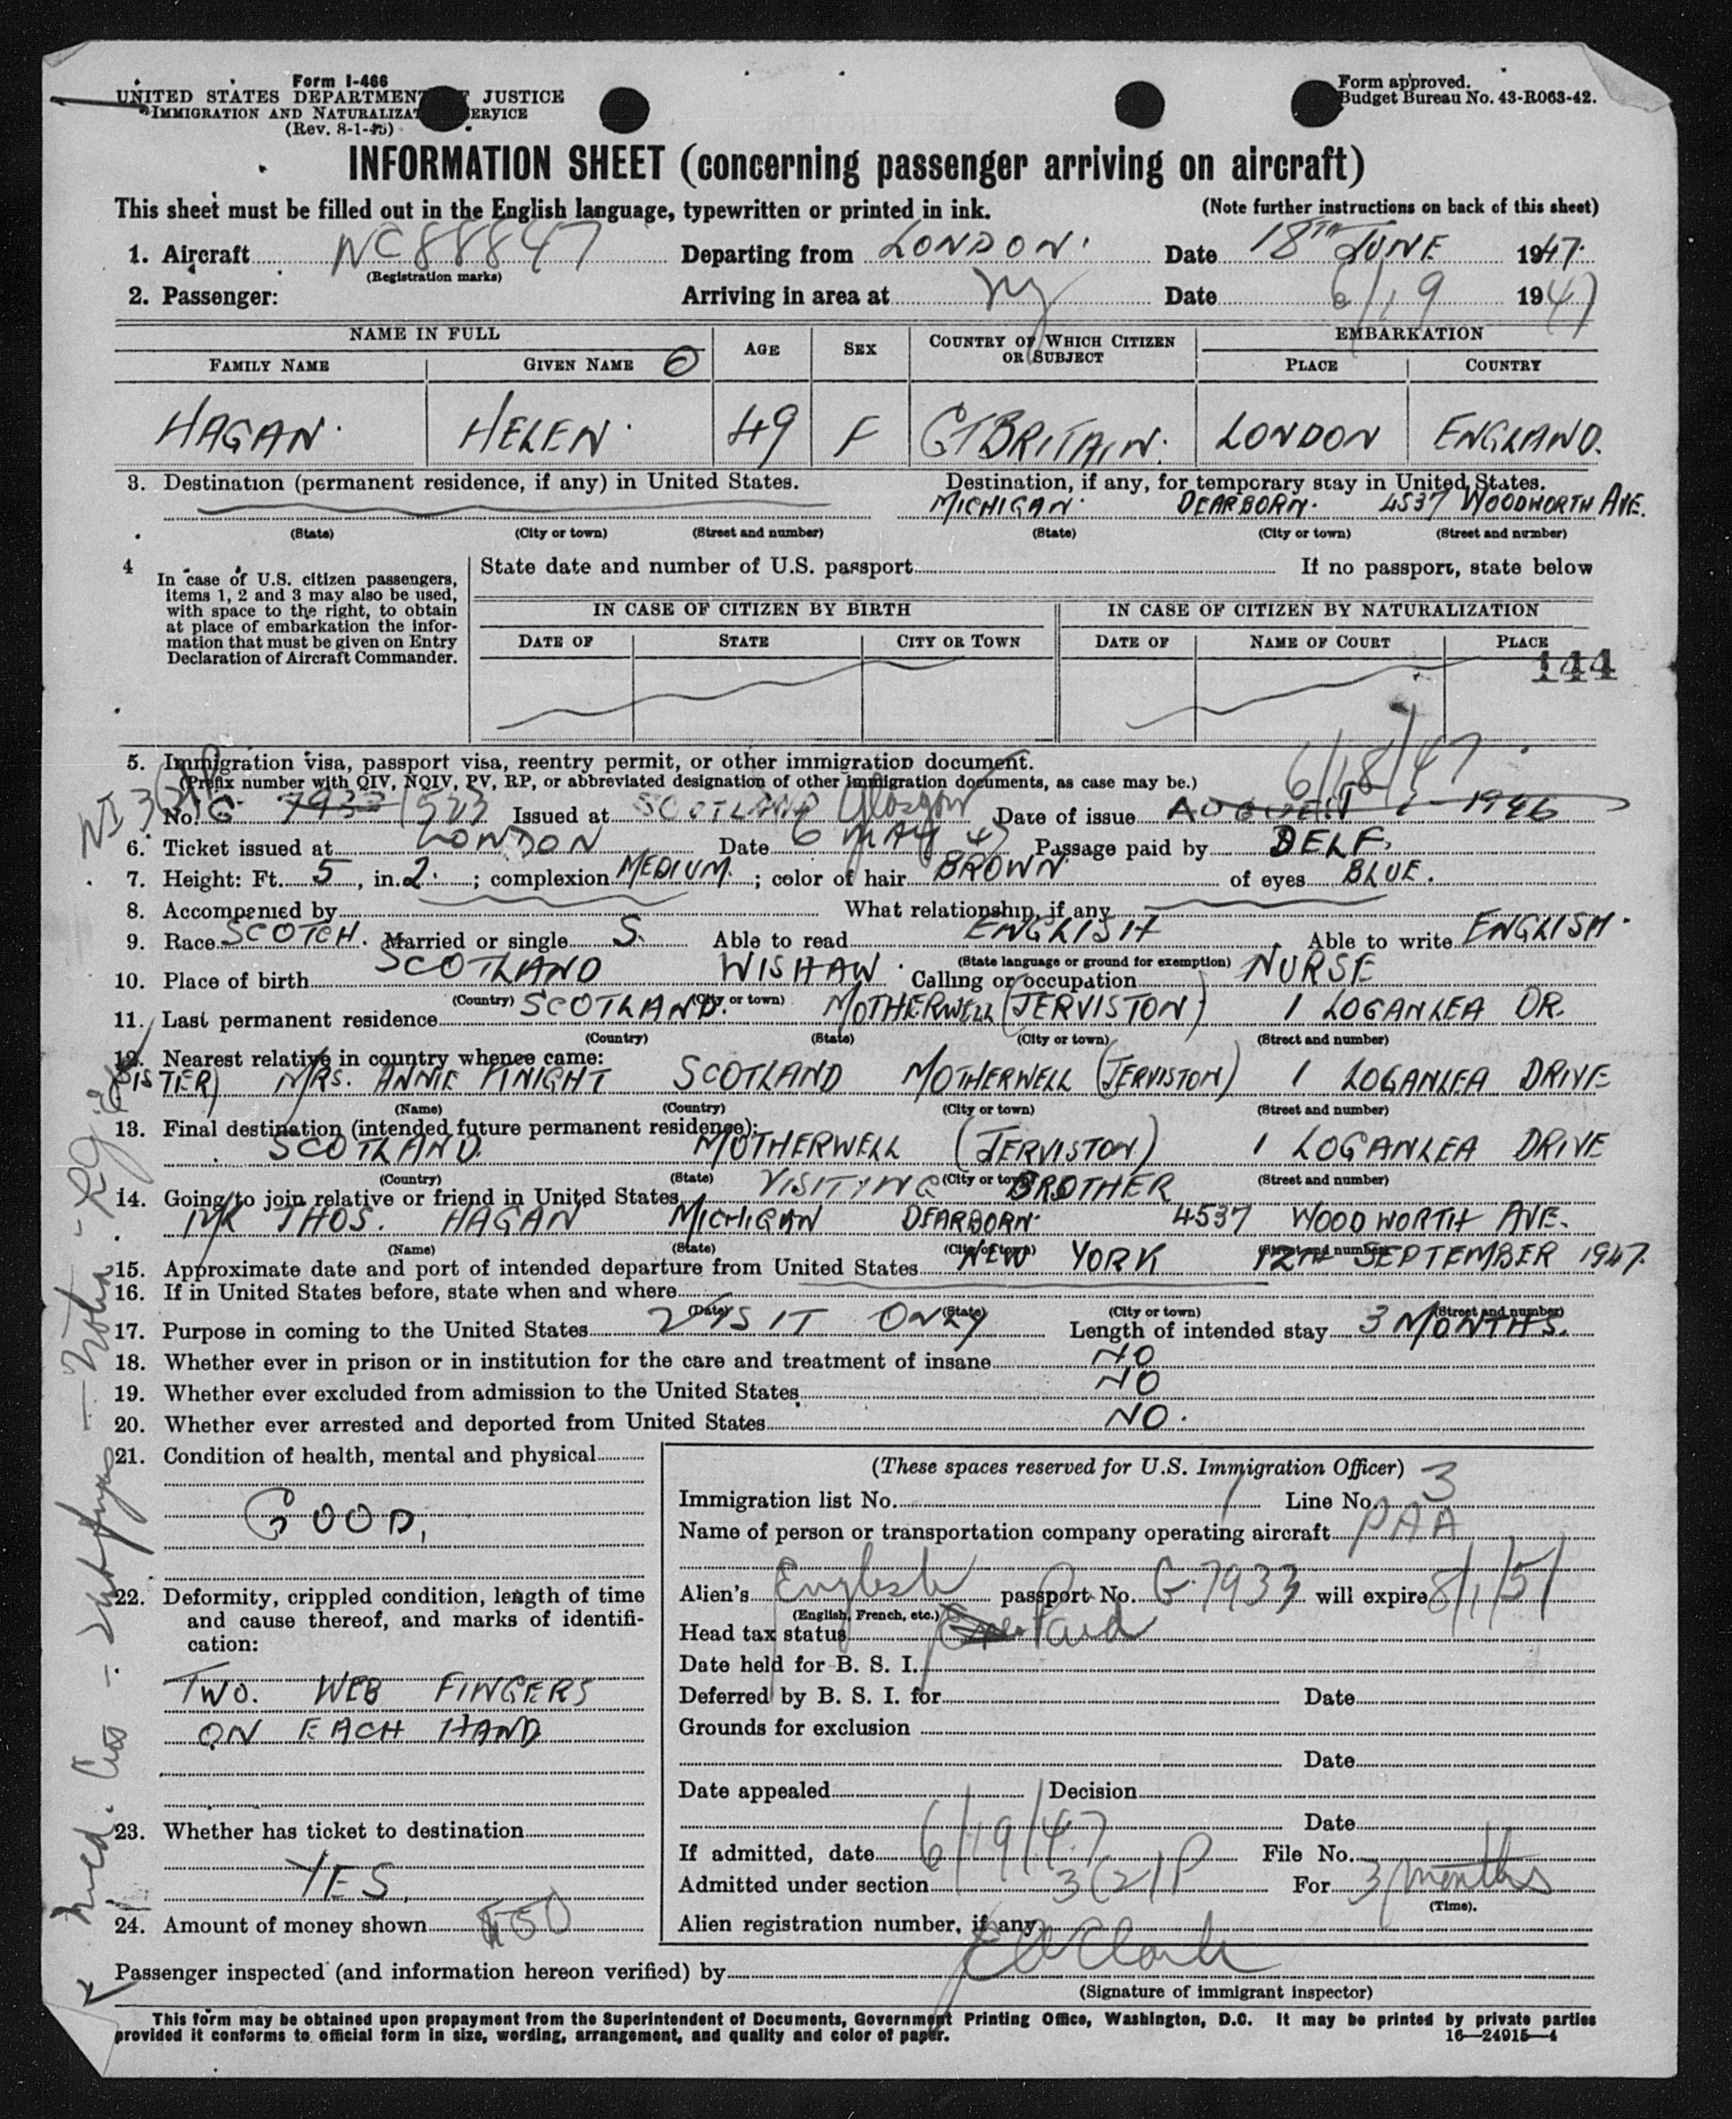 Form I-466
UNITED STATES DEPARTMENT OF JUSTICE
IMMIGRATION AND NATURALIZATION SERVICE
(Rev. 8-1-45)
Form approved.
Budget Bureau No. 43-R063-42.
INFORMATION SHEET (concerning passenger arriving on aircraft)
This sheet must be filled out in the English language, typewritten or printed in ink. (Note further instructions on back of this sheet)
1. Aircraft NC88847 Departing from LONDON. Date 18TH JUNE 1947.
(Registration marks)
2. Passenger: Arriving in area at NY Date 6/19 1947
NAME IN FULL AGE SEX COUNTRY OF WHICH CITIZEN OR SUBJECT EMBARKATION
FAMILY NAME GIVEN NAME PLACE COUNTRY
HAGAN. HELEN. 49 F GT BRITAIN. LONDON ENGLAND.
3. Destination (permanent residence, if any) in United States. Destination, if any, for temporary stay in United States.
MICHIGAN. DEARBORN. 4537 WOODWORTH AVE.
(State) (City or town) (Street and number) (State) (City or town) (Street and number)
4 In case of U.S. citizen passengers, items 1, 2 and 3 may also be used, with space to the right, to obtain at place of embarkation the information that must be given on Entry Declaration of Aircraft Commander.
State date and number of U.S. passport If no passport, state below
IN CASE OF CITIZEN BY BIRTH IN CASE OF CITIZEN BY NATURALIZATION
DATE OF STATE CITY OR TOWN DATE OF NAME OF COURT PLACE
144
5. Immigration visa, passport visa, reentry permit, or other immigration document. 6/18/47
(Prefix number with QIV, NQIV, PV, RP, or abbreviated designation of other immigration documents, as case may be.)
No. G 7933 1523 Issued at SCOTLAND Glasgow Date of issue AUGUST 1 - 1946
6. Ticket issued at LONDON Date 6 MAY 47 Passage paid by SELF.
7. Height: Ft. 5, in. 2.; complexion MEDIUM.; color of hair BROWN of eyes BLUE.
8. Accompanied by What relationship, if any
9. Race SCOTCH. Married or single S. Able to read ENGLISH Able to write ENGLISH.
(State language or ground for exemption)
10. Place of birth SCOTLAND WISHAW. Calling or occupation NURSE
(Country) (City or town)
11. Last permanent residence SCOTLAND. MOTHERWELL (JERVISTON) 1 LOGANLEA DR.
(Country) (State) (City or town) (Street and number)
12. Nearest relative in country whence came:
(SISTER) MRS. ANNIE KNIGHT SCOTLAND MOTHERWELL (JERVISTON) 1 LOGANLEA DRIVE
(Name) (Country) (City or town) (Street and number)
13. Final destination (intended future permanent residence):
SCOTLAND. MOTHERWELL (JERVISTON) 1 LOGANLEA DRIVE
(Country) (State) (City or town) (Street and number)
14. Going to join relative or friend in United States VISITING BROTHER
MR THOS. HAGAN MICHIGAN DEARBORN. 4537 WOODWORTH AVE.
(Name) (State) (City or town) (Street and number)
15. Approximate date and port of intended departure from United States NEW YORK 12TH SEPTEMBER 1947.
16. If in United States before, state when and where
(Date) (State) (City or town) (Street and number)
17. Purpose in coming to the United States VISIT ONLY Length of intended stay 3 MONTHS.
18. Whether ever in prison or in institution for the care and treatment of insane NO
19. Whether ever excluded from admission to the United States NO
20. Whether ever arrested and deported from United States NO.
21. Condition of health, mental and physical
GOOD.
22. Deformity, crippled condition, length of time and cause thereof, and marks of identification:
TWO. WEB FINGERS
ON EACH HAND
23. Whether has ticket to destination
YES.
24. Amount of money shown 50
(These spaces reserved for U.S. Immigration Officer)
Immigration list No. 1 Line No. 3
Name of person or transportation company operating aircraft PAA
Alien's English passport No. G. 7933 will expire 8/1/51
(English, French, etc.)
Head tax status Paid
Date held for B. S. I.
Deferred by B. S. I. for Date
Grounds for exclusion
Date
Date appealed Decision
Date
If admitted, date 6/19/47 File No.
Admitted under section 3(2)P For 3 months
(Time).
Alien registration number, if any
Passenger inspected (and information hereon verified) by Clark
(Signature of immigrant inspector)
This form may be obtained upon prepayment from the Superintendent of Documents, Government Printing Office, Washington, D.C. It may be printed by private parties
provided it conforms to official form in size, wording, arrangement, and quality and color of paper. 16—24915-4